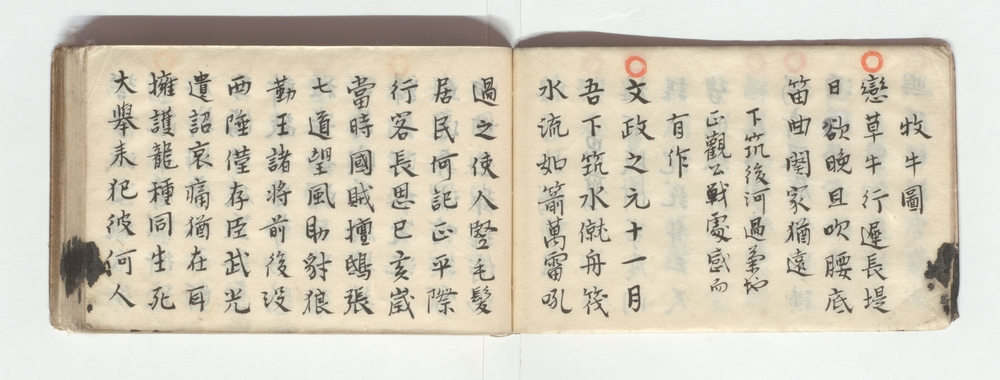 牧牛圖
戀草牛行遲長堤
日欲晚且吹腰底
笛曲関家猶遠
下筑後河過菊地
正觀公戰處感而
有作
文政之元十一月
吾下筑水僦舟筏
水流如箭萬雷吼
過之使人竪毛髮
居民何記正平際
行客長思已亥歳
當時國賊擅鴟張
七道望風助豺狼
勤王諸將前後没
西陲僅存臣武光
遺詔哀痛猶在耳
擁護龍種同生死
大舉来犯彼何人